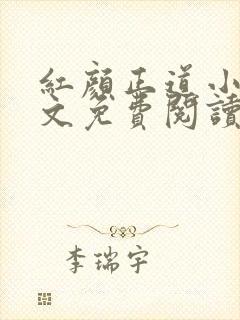 紅顏正道小
文免費閱讀
李瑞宇